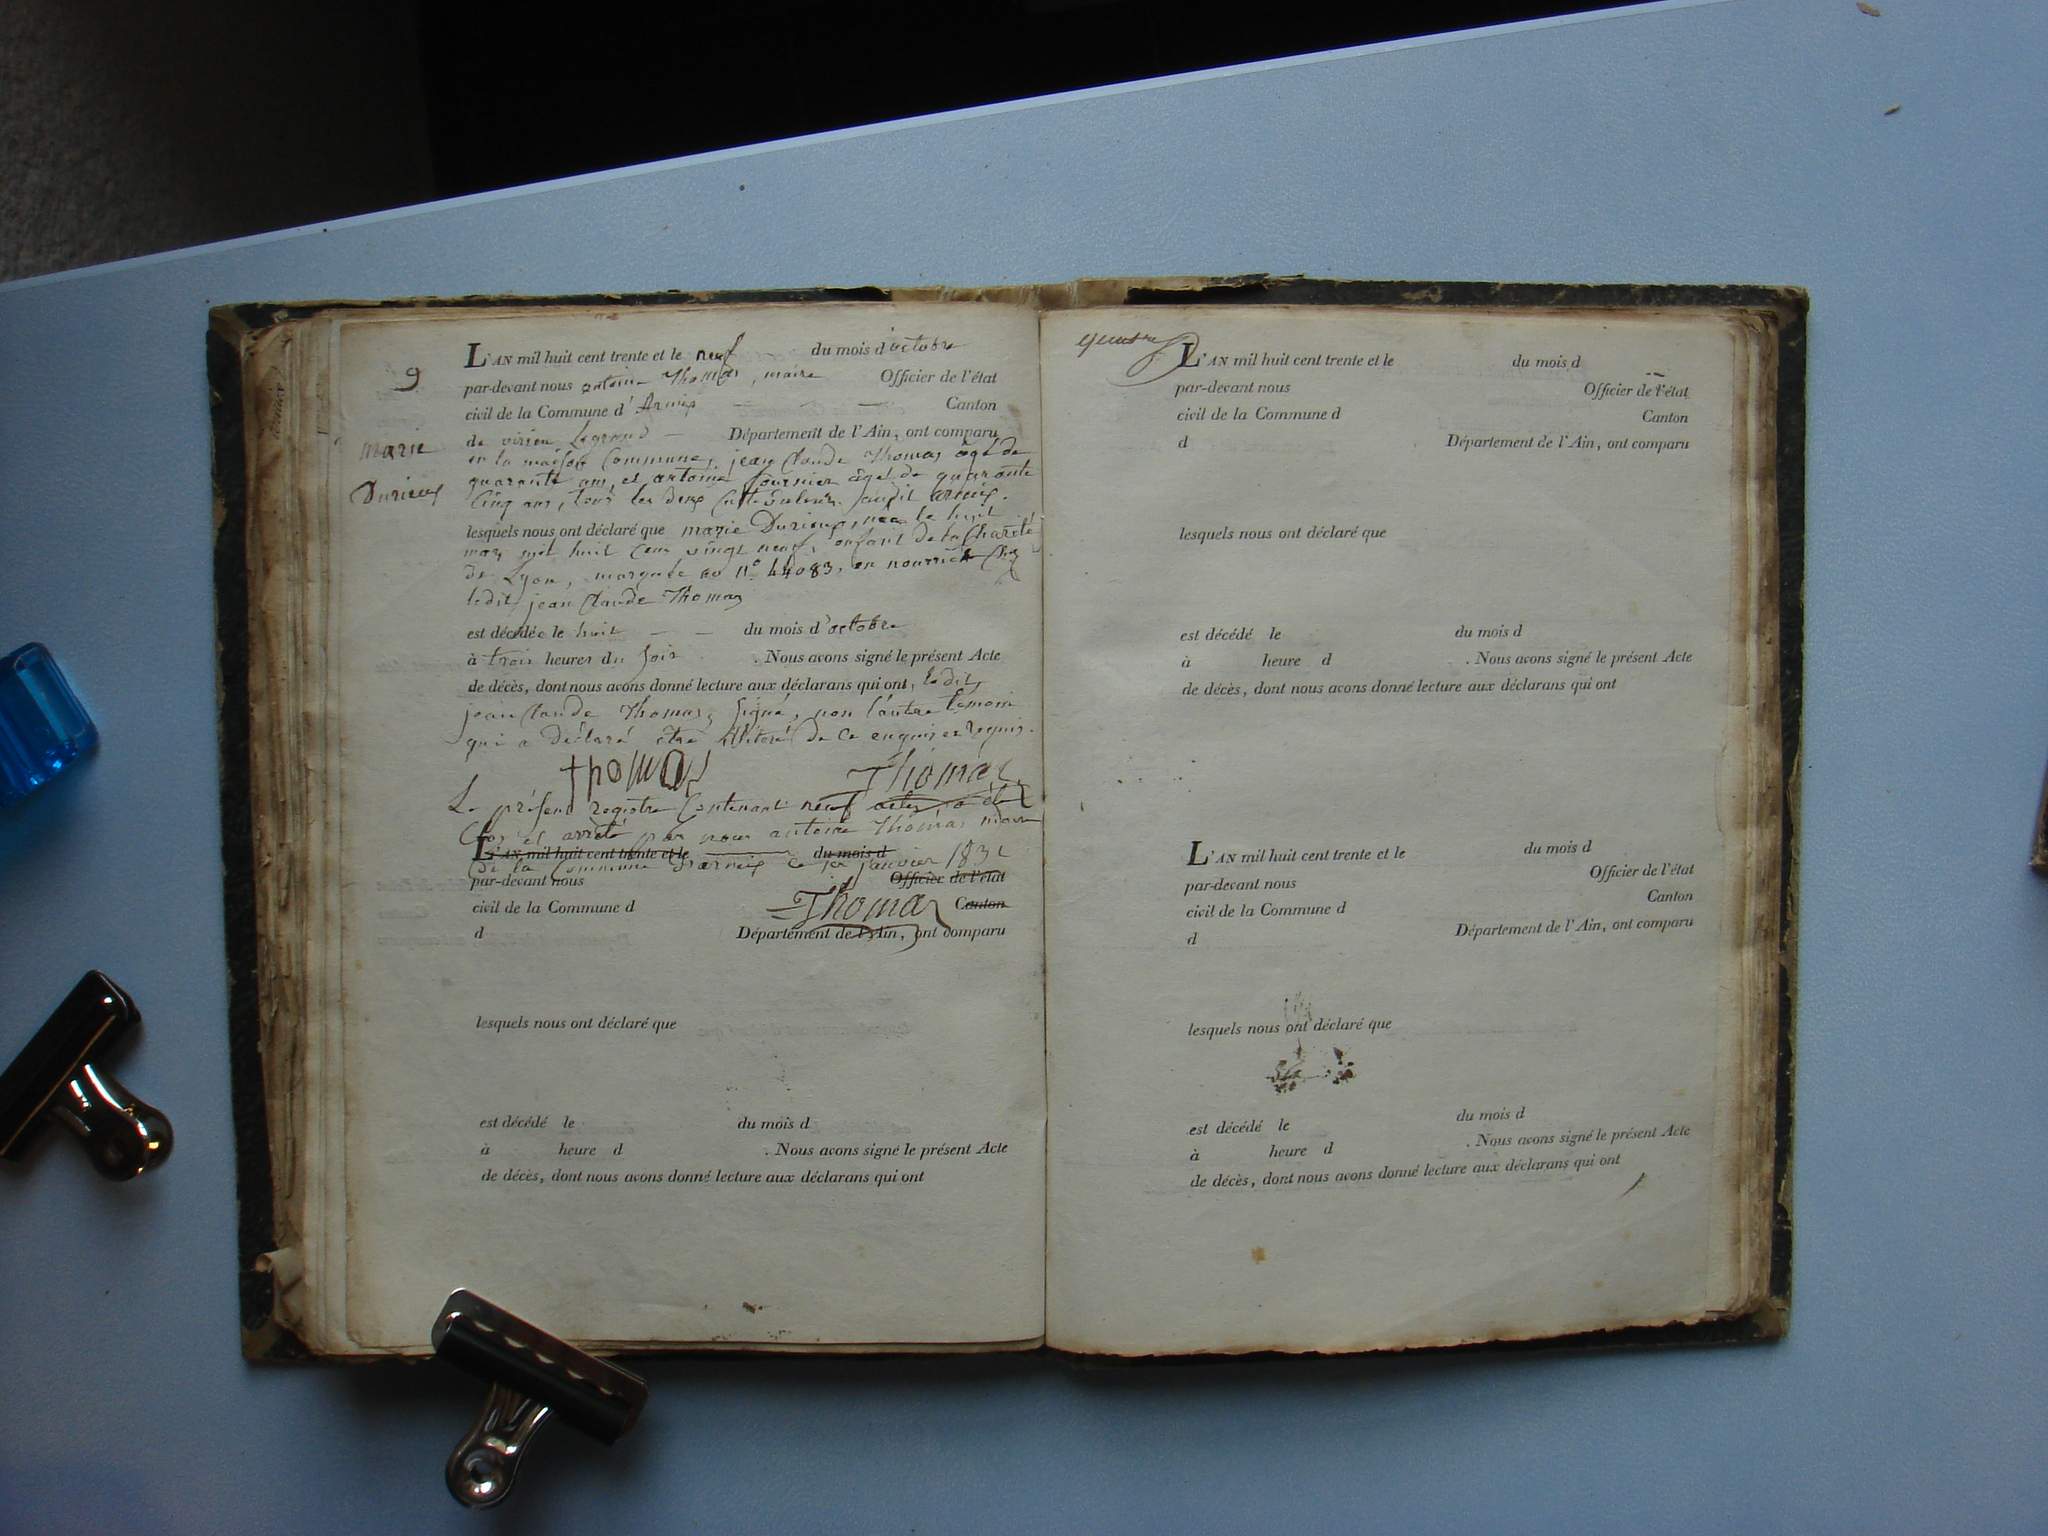 9
marie
Durieux
L'AN mil huit cent trente et le neuf du mois d'octobre
par-devant nous antoine Thomas, maire Officier de l'état
civil de la Commune d'Armix Canton
de virieu Legrand Département de l'Ain, ont comparu
en la maison Commune, jean Claude Thomas agé de
quarante ans, et antoine fournier âgé de quarante
Cinq ans, tous les deux Cultivateurs audit armix.
lesquels nous ont déclaré que marie Durieux, née le huit
mars mil huit cent vingt neuf, enfant de la Charité
de Lyon, marquée au n° 44083, en nourrice chez
ledit jean Claude Thomas
est décédée le huit du mois d'octobre
à trois heures du soir . Nous avons signé le présent Acte
de décès, dont nous avons donné lecture aux déclarans qui ont, ledit
jean Claude Thomas, signé, non l'autre témoin
qui a déclaré être illitéré de ce enquis et requis.
thomas Thomas
Le présent registre Contenant neuf actes, a été
Clos et arrêté par nous antoine Thomas maire
L'AN mil huit cent trente et le du mois d
de la Commune d'armix ce 1er janvier 1831
par-devant nous Officier de l'état
civil de la Commune d Thomas Canton
d Département de l'Ain, ont comparu
lesquels nous ont déclaré que
est décédé le du mois d
à heure d . Nous avons signé le présent Acte
de décès, dont nous avons donné lecture aux déclarans qui ont
L'AN mil huit cent trente et le du mois d
par-devant nous Officier de l'état
civil de la Commune d Canton
d Département de l'Ain, ont comparu
lesquels nous ont déclaré que
est décédé le du mois d
à heure d . Nous avons signé le présent Acte
de décès, dont nous avons donné lecture aux déclarans qui ont
L'AN mil huit cent trente et le du mois d
par-devant nous Officier de l'état
civil de la Commune d Canton
d Département de l'Ain, ont comparu
lesquels nous ont déclaré que
est décédé le du mois d
à heure d . Nous avons signé le présent Acte
de décès, dont nous avons donné lecture aux déclarans qui ont